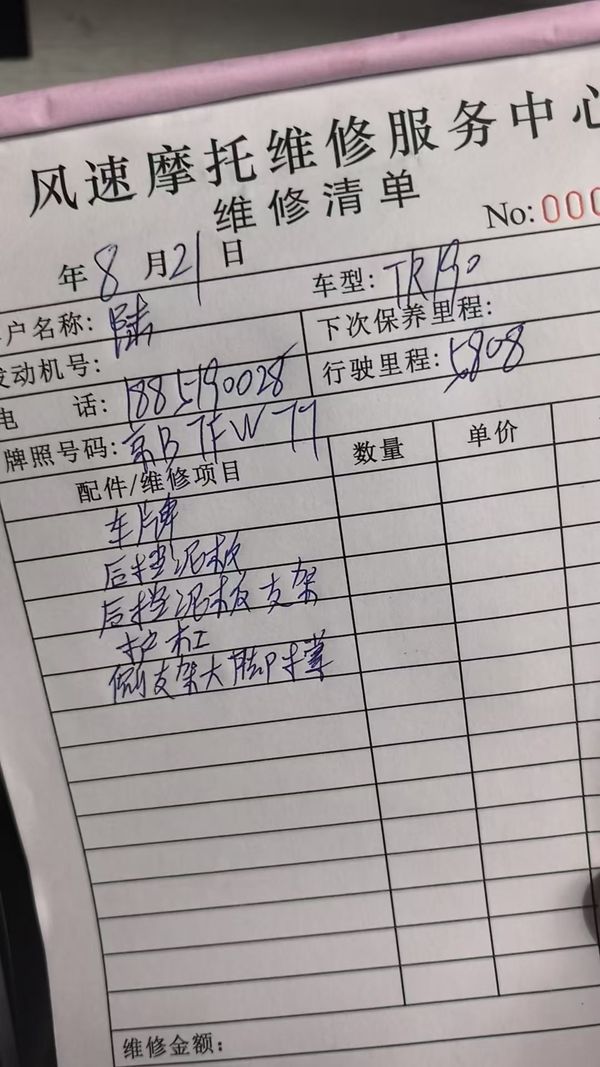 风速摩托维修服务中心
维修清单
No: 000
年 8 月 21 日
车型: TR190
户名称: 陆
下次保养里程:
发动机号:
行驶里程: 5808
电 话: 18851190028
牌照号码: 京B 7FW77
配件/维修项目 数量 单价
车牌
后挡泥板
后挡泥板支架
护杠
侧支架大脚撑
维修金额: